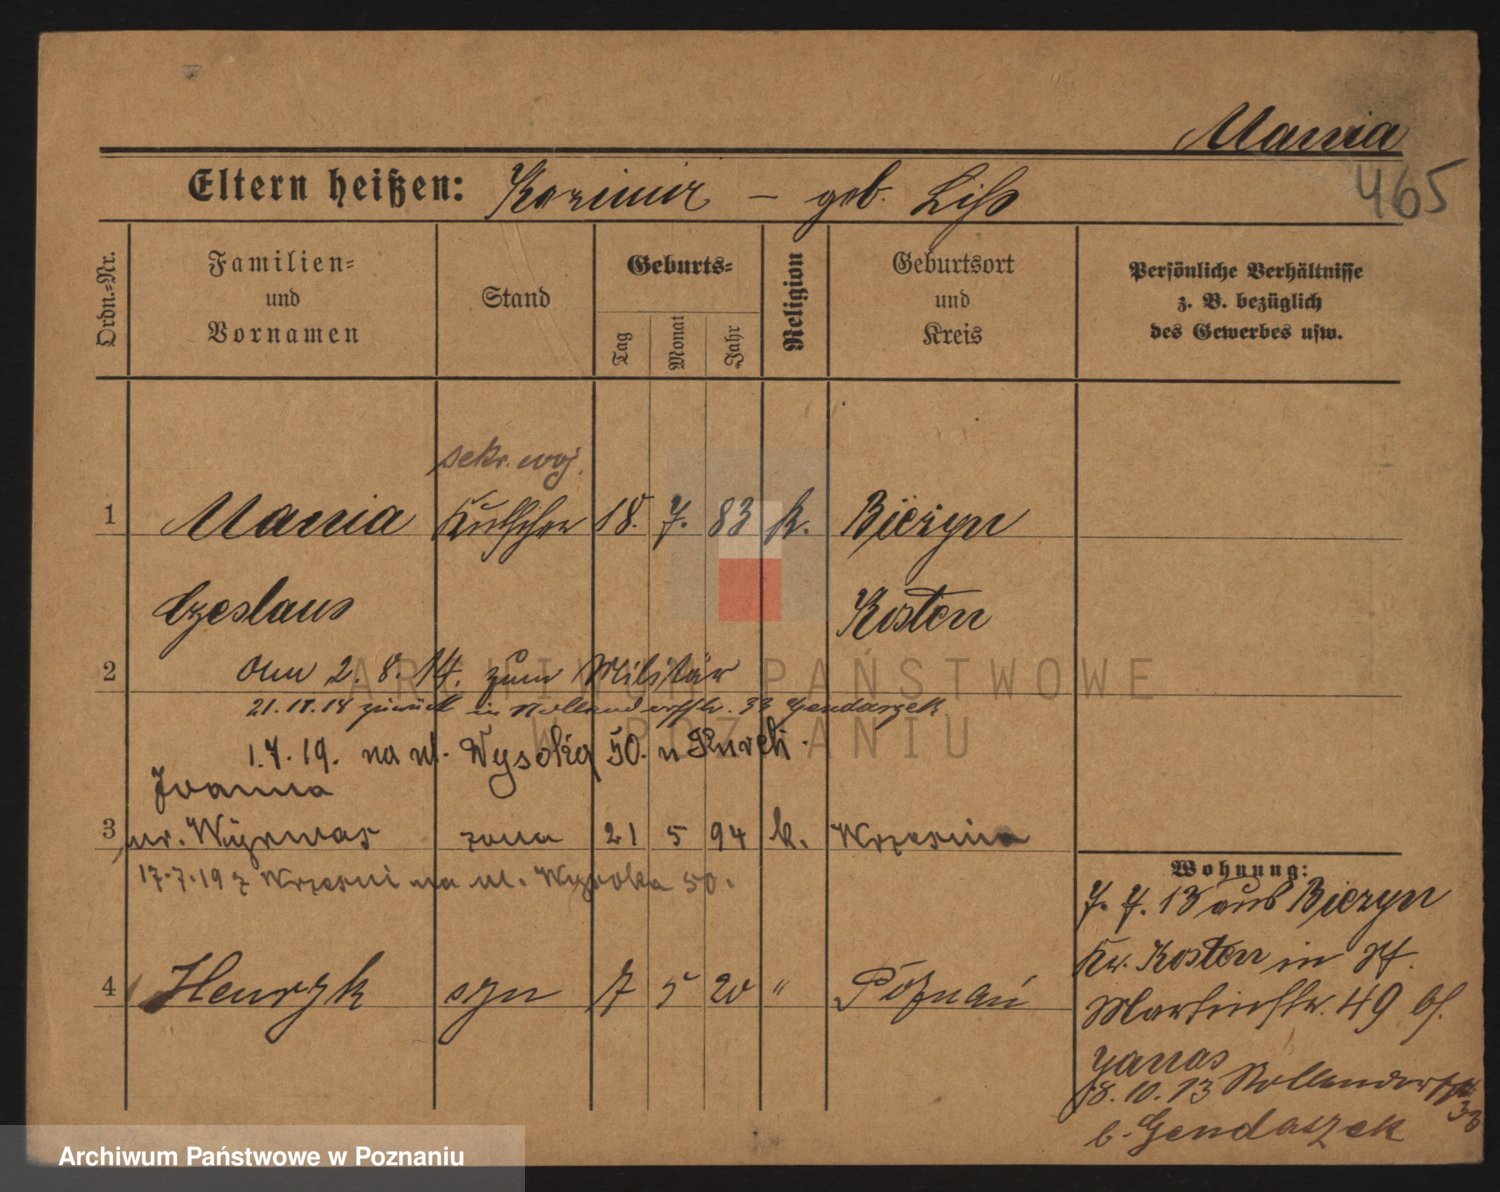 Mania
465
Eltern heißen: Kazimir – geb. Liss
Ordn.-Nr.
Familien-
und
Vornamen
Stand
Geburts-
Tag
Monat
Jahr
Religion
Geburtsort
und
Kreis
Persönliche Verhältnisse
z. B. bezüglich
des Gewerbes usw.
sekr. woj.
1 Mania Kutscher 18. 7. 83 k. Bieżyn
Czeslaus Kosten
2 Am 2. 8. 14. zum Militär
21.11.18 zurück in Nollendorfstr. 33 Gendaszek
1.4.19. na ul. Wysoką 50. u Kurek.
Joanna
3 ur. Wyrwas żona 21 5 94 k. Września
17.7.19 z Wrześni na ul. Wysoka 50.
4 Henryk syn 7 5 20 " Poznań
Wohnung:
7. 7. 13 aus Biezyn
Kr. Kosten in St.
Martinstr. 49 bf.
18.10.13 Nollendorfstr
33
b. Gendaszek
ARCHIWUM PAŃSTWOWE
W POZNANIU
Archiwum Państwowe w Poznaniu